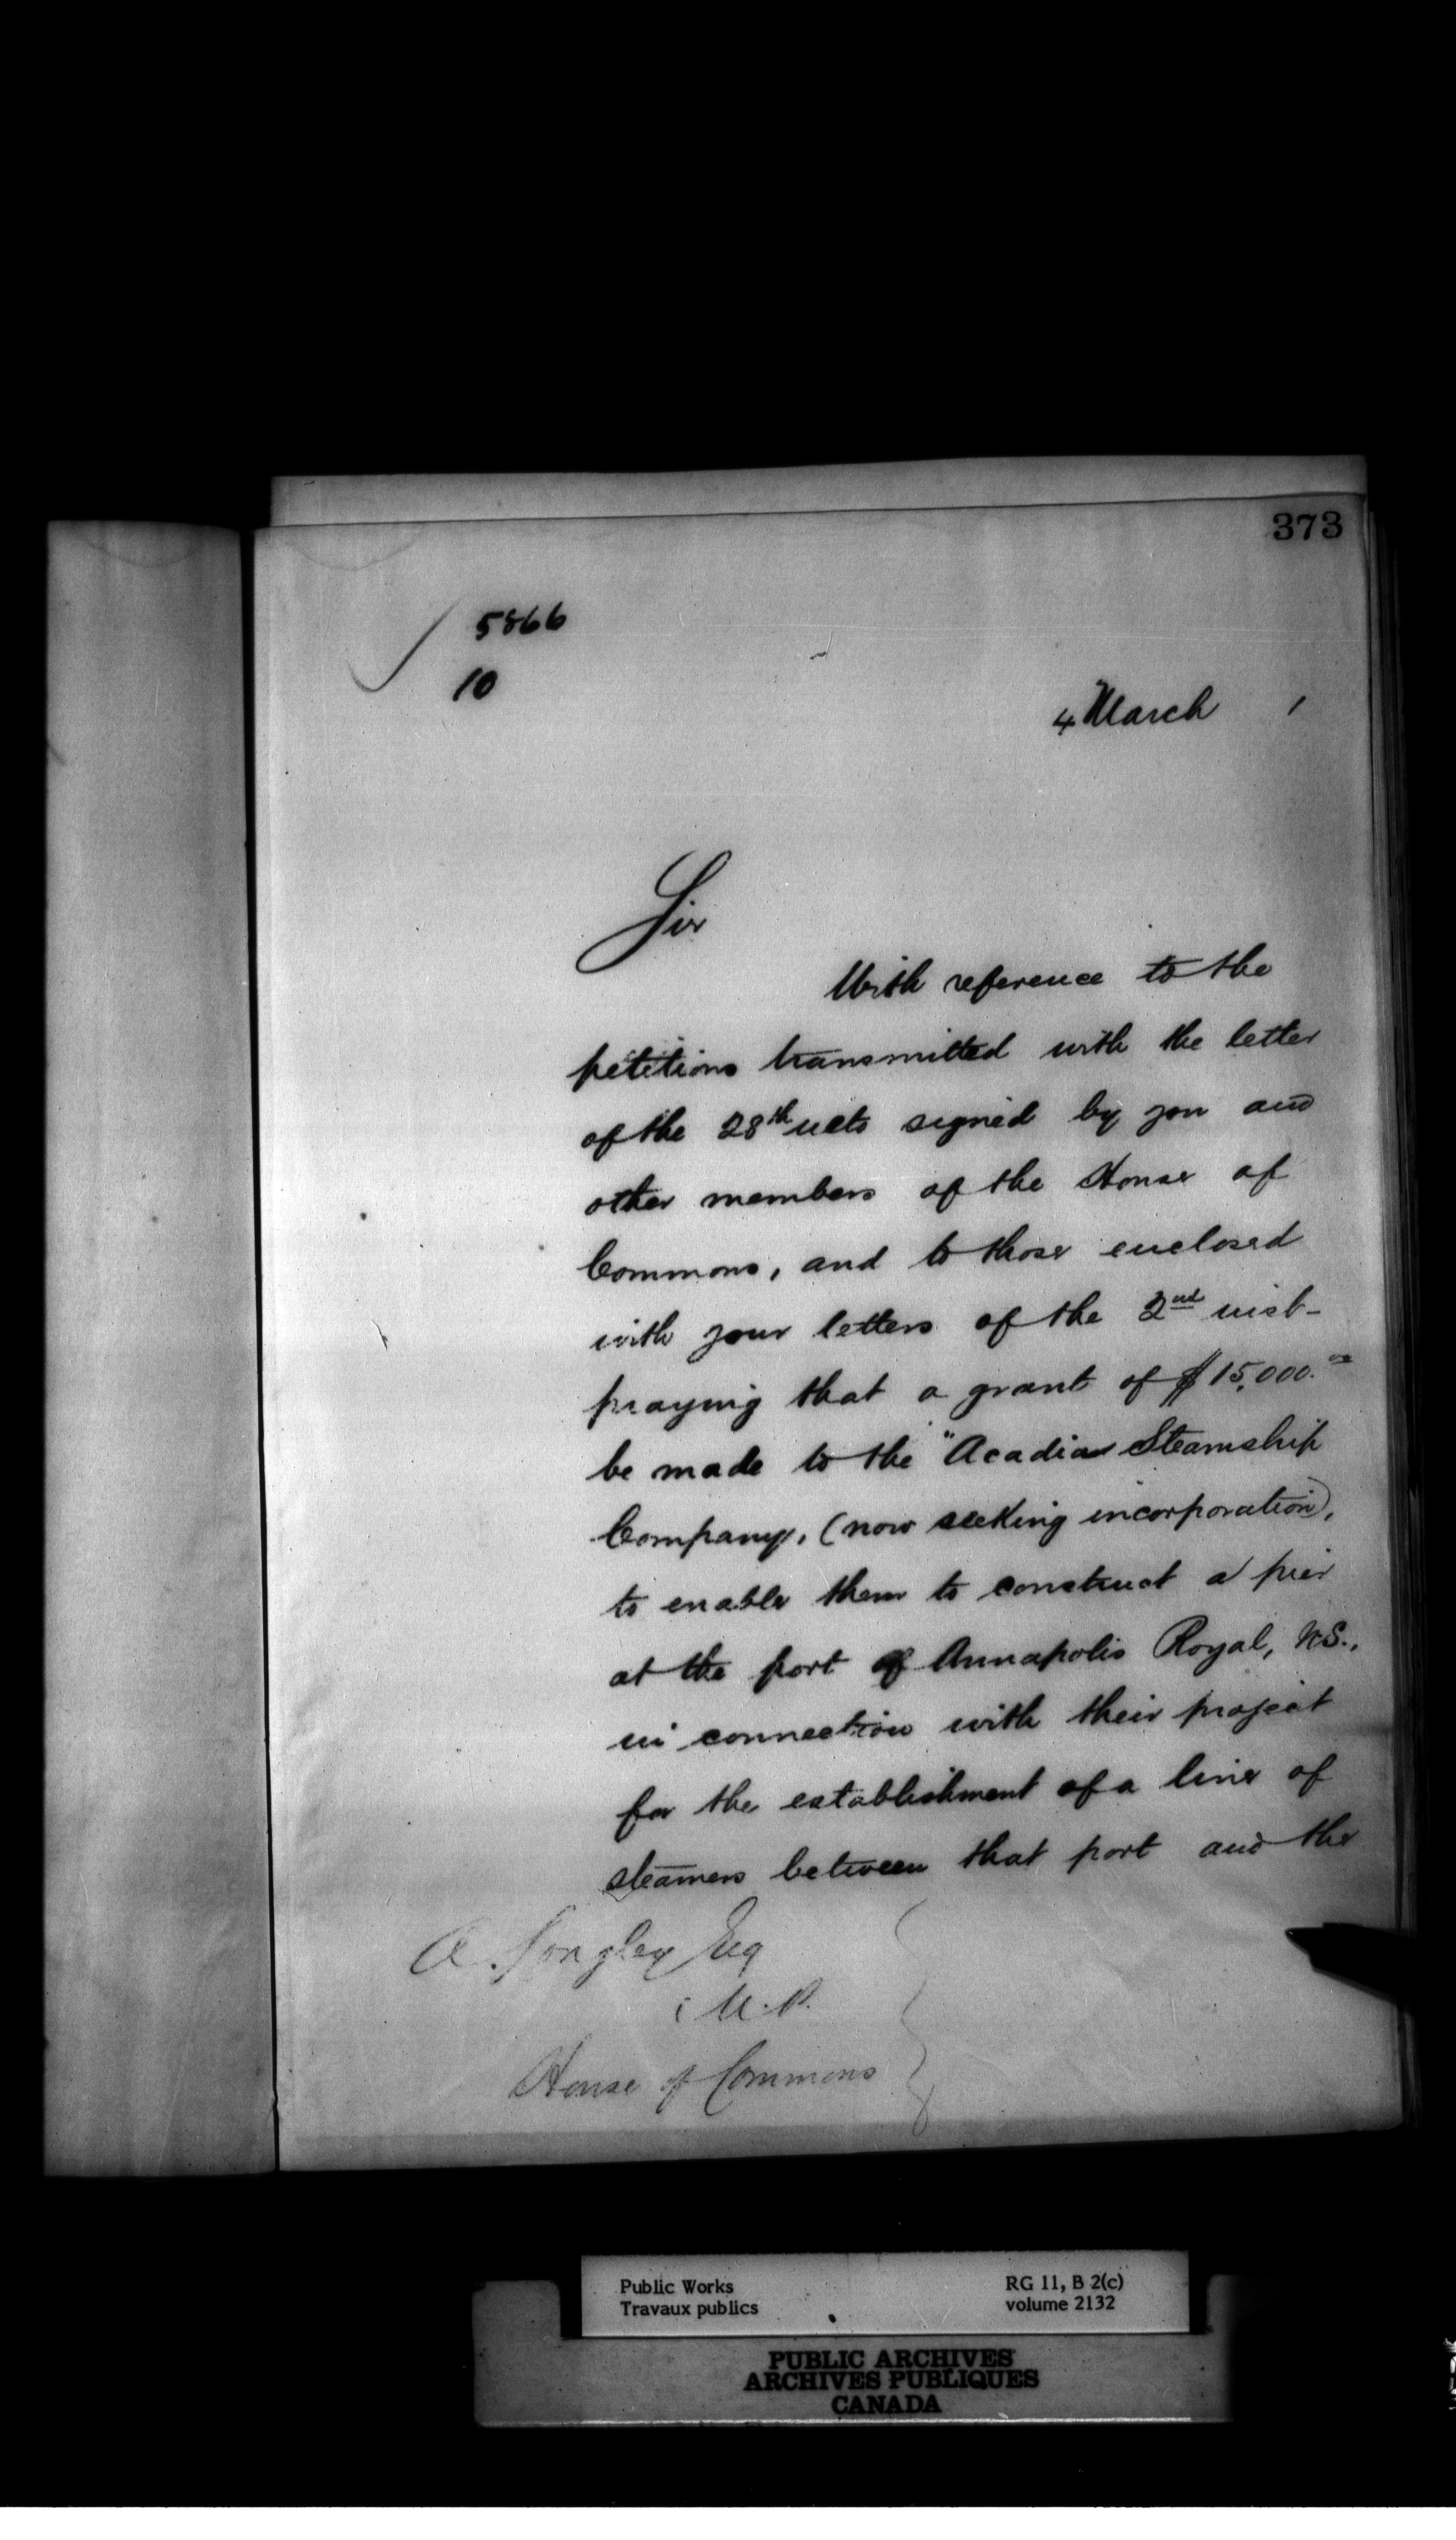 373
5866
10
4 March 1
Sir
With reference to the
petitions transmitted with the letter
of the 28th ulto signed by you and
other members of the House of
Commons, and to those enclosed
with your letters of the 2nd inst-
praying that a grant of $15,000.00
be made to the "Acadia Steamship
Company, (now seeking incorporation),
to enable them to construct a pier
at the port of Annapolis Royal, N.S.,
in connection with their project
for the establishment of a line of
steamers between that port and the
A. Longley Esq
M.P.
House of Commons
Public Works
Travaux publics
RG 11, B 2(c)
volume 2132
PUBLIC ARCHIVES
ARCHIVES PUBLIQUES
CANADA